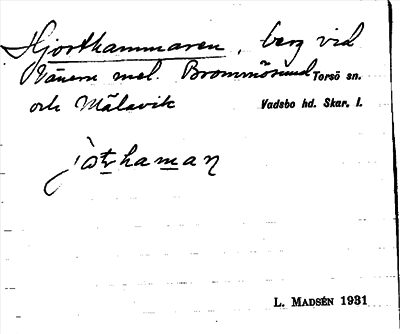 Hjorthammaren, berg vid
Vänern mel. Brommösund Torsö sn.
och Mälavik Vadsbo hd. Skar. l.
L. MADSÉN 1931